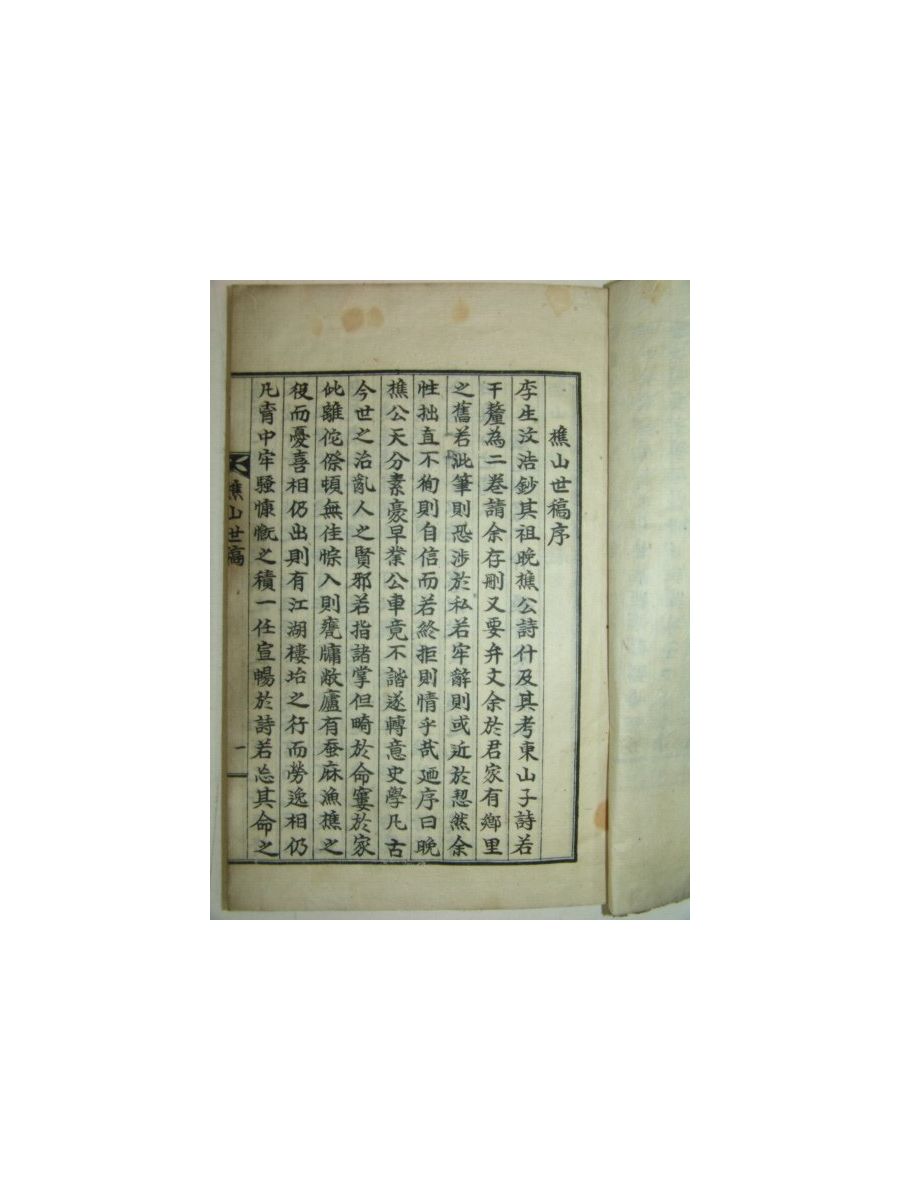 樵山世稿序
李生汶浩鈔其祖晩樵公詩什及其考東山子詩若
干釐為二卷請余存刪又要弁文余於君家有鄕里
之舊若泚筆則恐涉於私若牢辭則或近於恝然余
性拙直不徇則自信而若終拒則情乎哉迺序曰晩
樵公天分素豪早業公車竟不諧遂轉意史學凡古
今世之治亂人之賢邪若指諸掌但畸於命窶於家
仳離侘傺頓無佳悰入則甕牖敝廬有蚕麻漁樵之
役而憂喜相仍出則有江湖樓坮之行而勞逸相仍
凡胷中牢騷慷慨之積一任宣暢於詩若忘其命之
樵山世稿
一